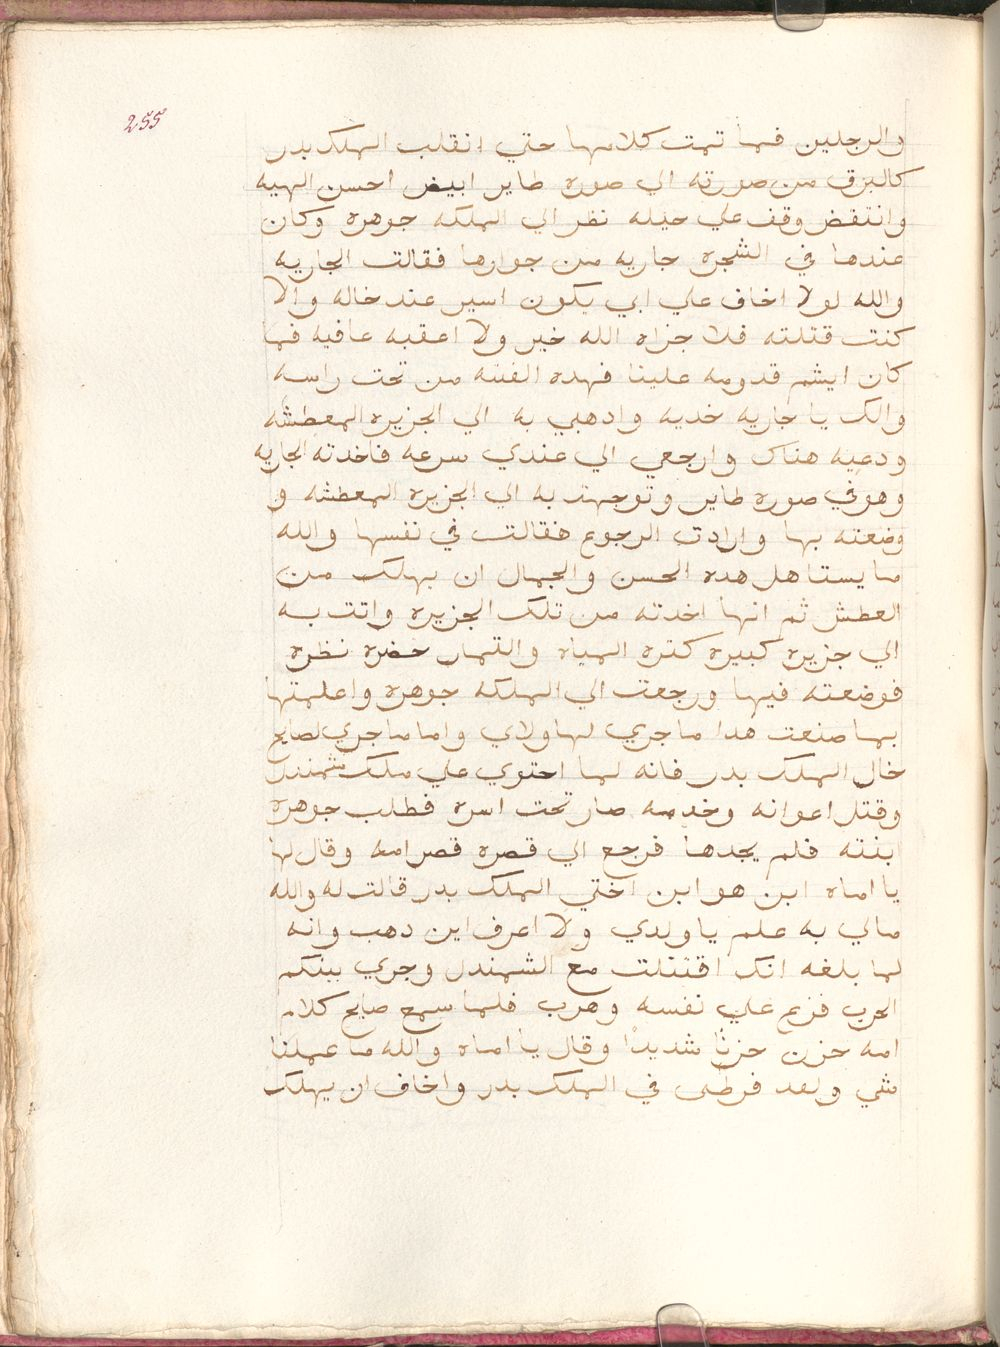 255
والرجلين فما تمت كلامها حتي انقلب الملك بدر
كالبرق من صورته الي صوره طاير ابيض احسن الهيه
وانتقض وقف علي حيله نظر الي الملكه جوهره وكان
عندها في الشجره جاريه من جوارها فقالت الجاريه
والله لولا اخاف علي ابي يكون اسير عند خاله والا
كنت قتلته فلا جزاه الله خير ولا اعقبه عافيه فما
كان ايشم قدومه علينا فهده الفتنه من تحت راسه
والك يا جاريه خديه وادهبي به الي الجزيره المعطشه
ودعيه هناك وارجعي الي عندي سرعه فاخدته الجاريه
وهو في صوره طاير وتوجهت به الي الجزيره المعطشه و
وضعته بها وارادت الرجوع فقالت في نفسها والله
ما يستاهل هده الحسن والجمال ان يهلك من
العطش ثم انها اخدته من تلك الجزيره واتت به
الي جزيره كبيره كتره المياه والتمار خضره نظره
فوضعته فيها ورجعت الي الملكه جوهره واعلمتها
بما صنعت هدا ما جري لهاولاي واما ما جري لصايح
خال الملك بدر فانه لما احتوي علي ملك شمندل
وقتل اعوانه وخدمه صار تحت اسره فطلب جوهره
ابنته فلم يجدها فرجع الي قصره قصر امه وقال لها
يا اماه اين هو ابن اختي الملك بدر قالت له والله
مالي به علم يا ولدي ولا اعرف اين دهب وانه
لما بلغه انك اقتتلت مع الشمندل وجري بينكم
الحرب فزع علي نفسه وهرب فلما سمع صايح كلام
امه حزن حزنًا شديدًا وقال يا اماه والله ما عملنا
شي ولقد فرطي في الملك بدر واخاف ان يهلك